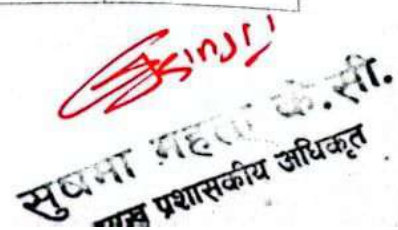 सुषमा महता के.सी.
प्रमुख प्रशासकीय अधिकृत